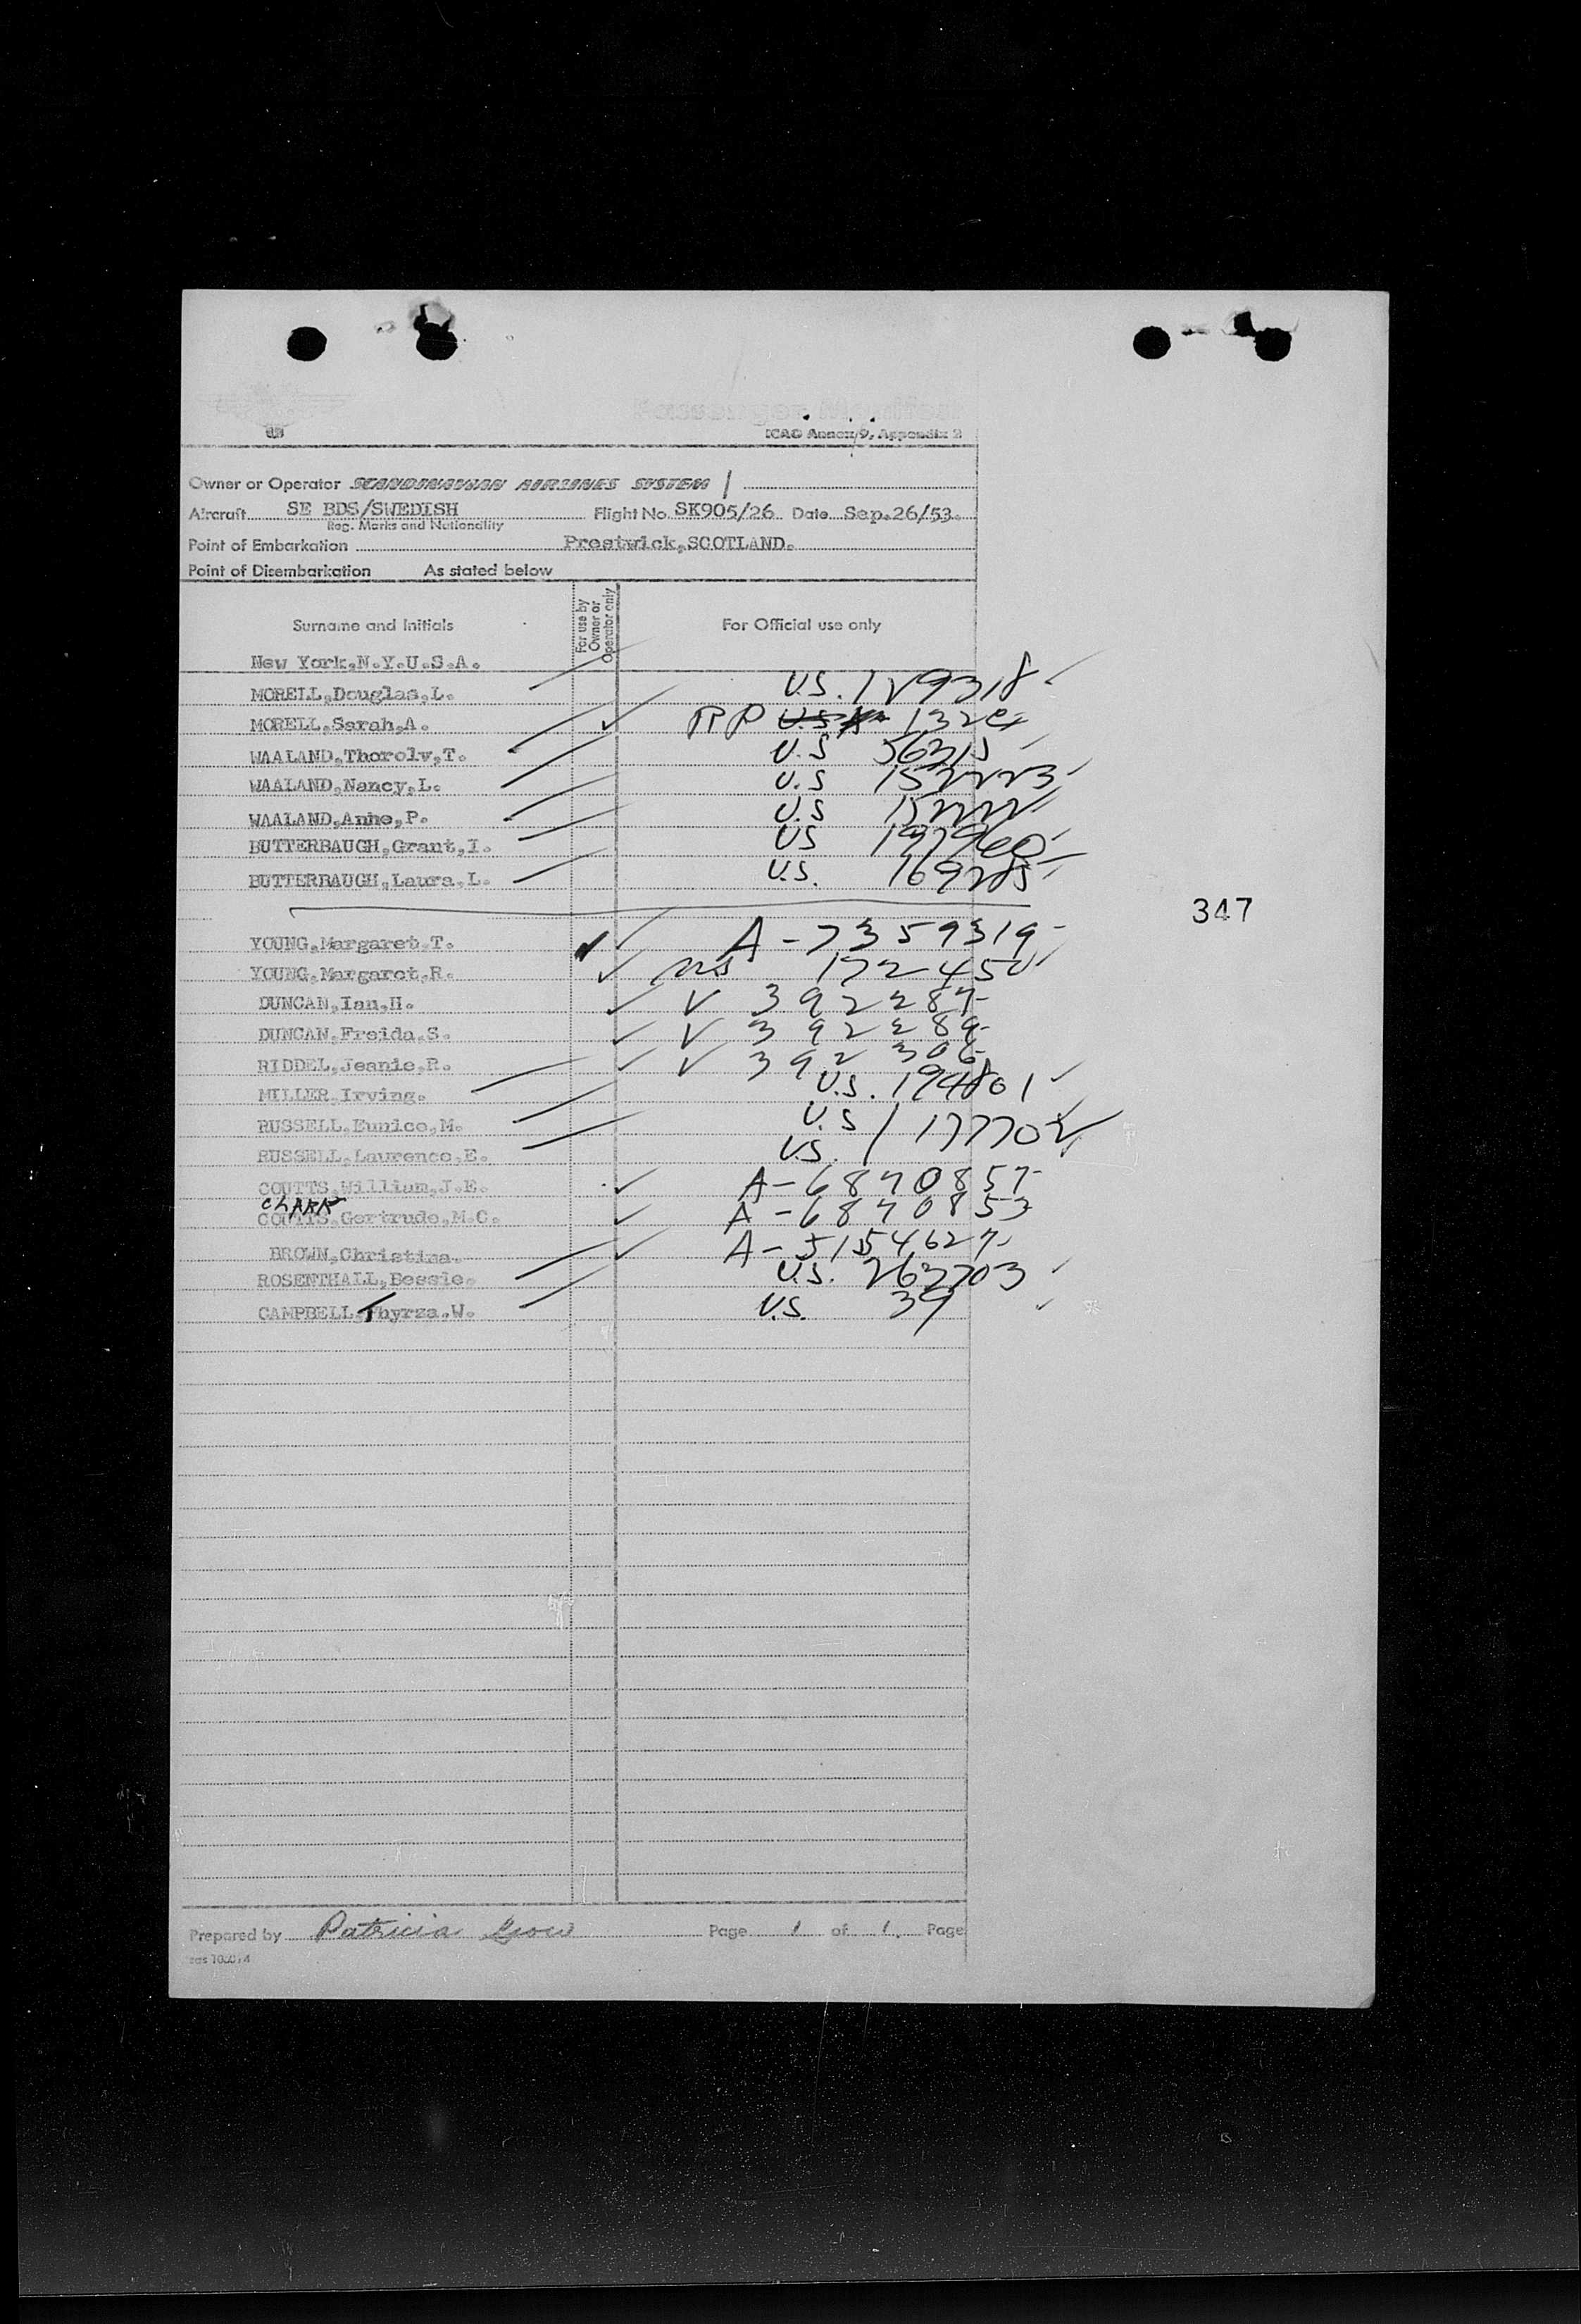 Passenger Manifest
ICAO Annex 9, Appendix 2
Owner or Operator SCANDINAVIAN AIRLINES SYSTEM
Aircraft SE BDS/SWEDISH Flight No. SK905/26 Date Sep.26/53.
Reg. Marks and Nationality
Point of Embarkation Prestwick,SCOTLAND.
Point of Disembarkation As stated below
Surname and Initials For use by Owner or Operator only For Official use only
New York.N.Y.U.S.A.
MORELL,Douglas,L. U.S.
MORELL,Sarah,A. RP
WAALAND,Thorolv,T. U.S 56315
WAALAND,Nancy,L. U.S 152223
WAALAND,Anne,P. U.S 152222
BUTTERBAUGH,Grant,I. US 197960
BUTTERBAUGH,Laura,L. U.S. 169285
347
YOUNG,Margaret.T. A-7359319
YOUNG,Margaret,R. 172450
DUNCAN,Ian,H. V 392287
DUNCAN,Freida,S. V 392289
RIDDEL,Jeanie,R. V 392306
MILLER,Irving. U.S. 194801
RUSSELL,Eunice,M. U.S
RUSSELL,Laurence,E. U.S. 177702
COUTTS,William,J.E. A-6870857
CLARK
COUTTS,Gertrude,M.C. A-6870853
BROWN,Christina. A-5154627
ROSENTHALL,Bessie. U.S. 263703
CAMPBELL,Thyrza.W. U.S. 39
Prepared by Patricia Gow Page 1 of 1. Page